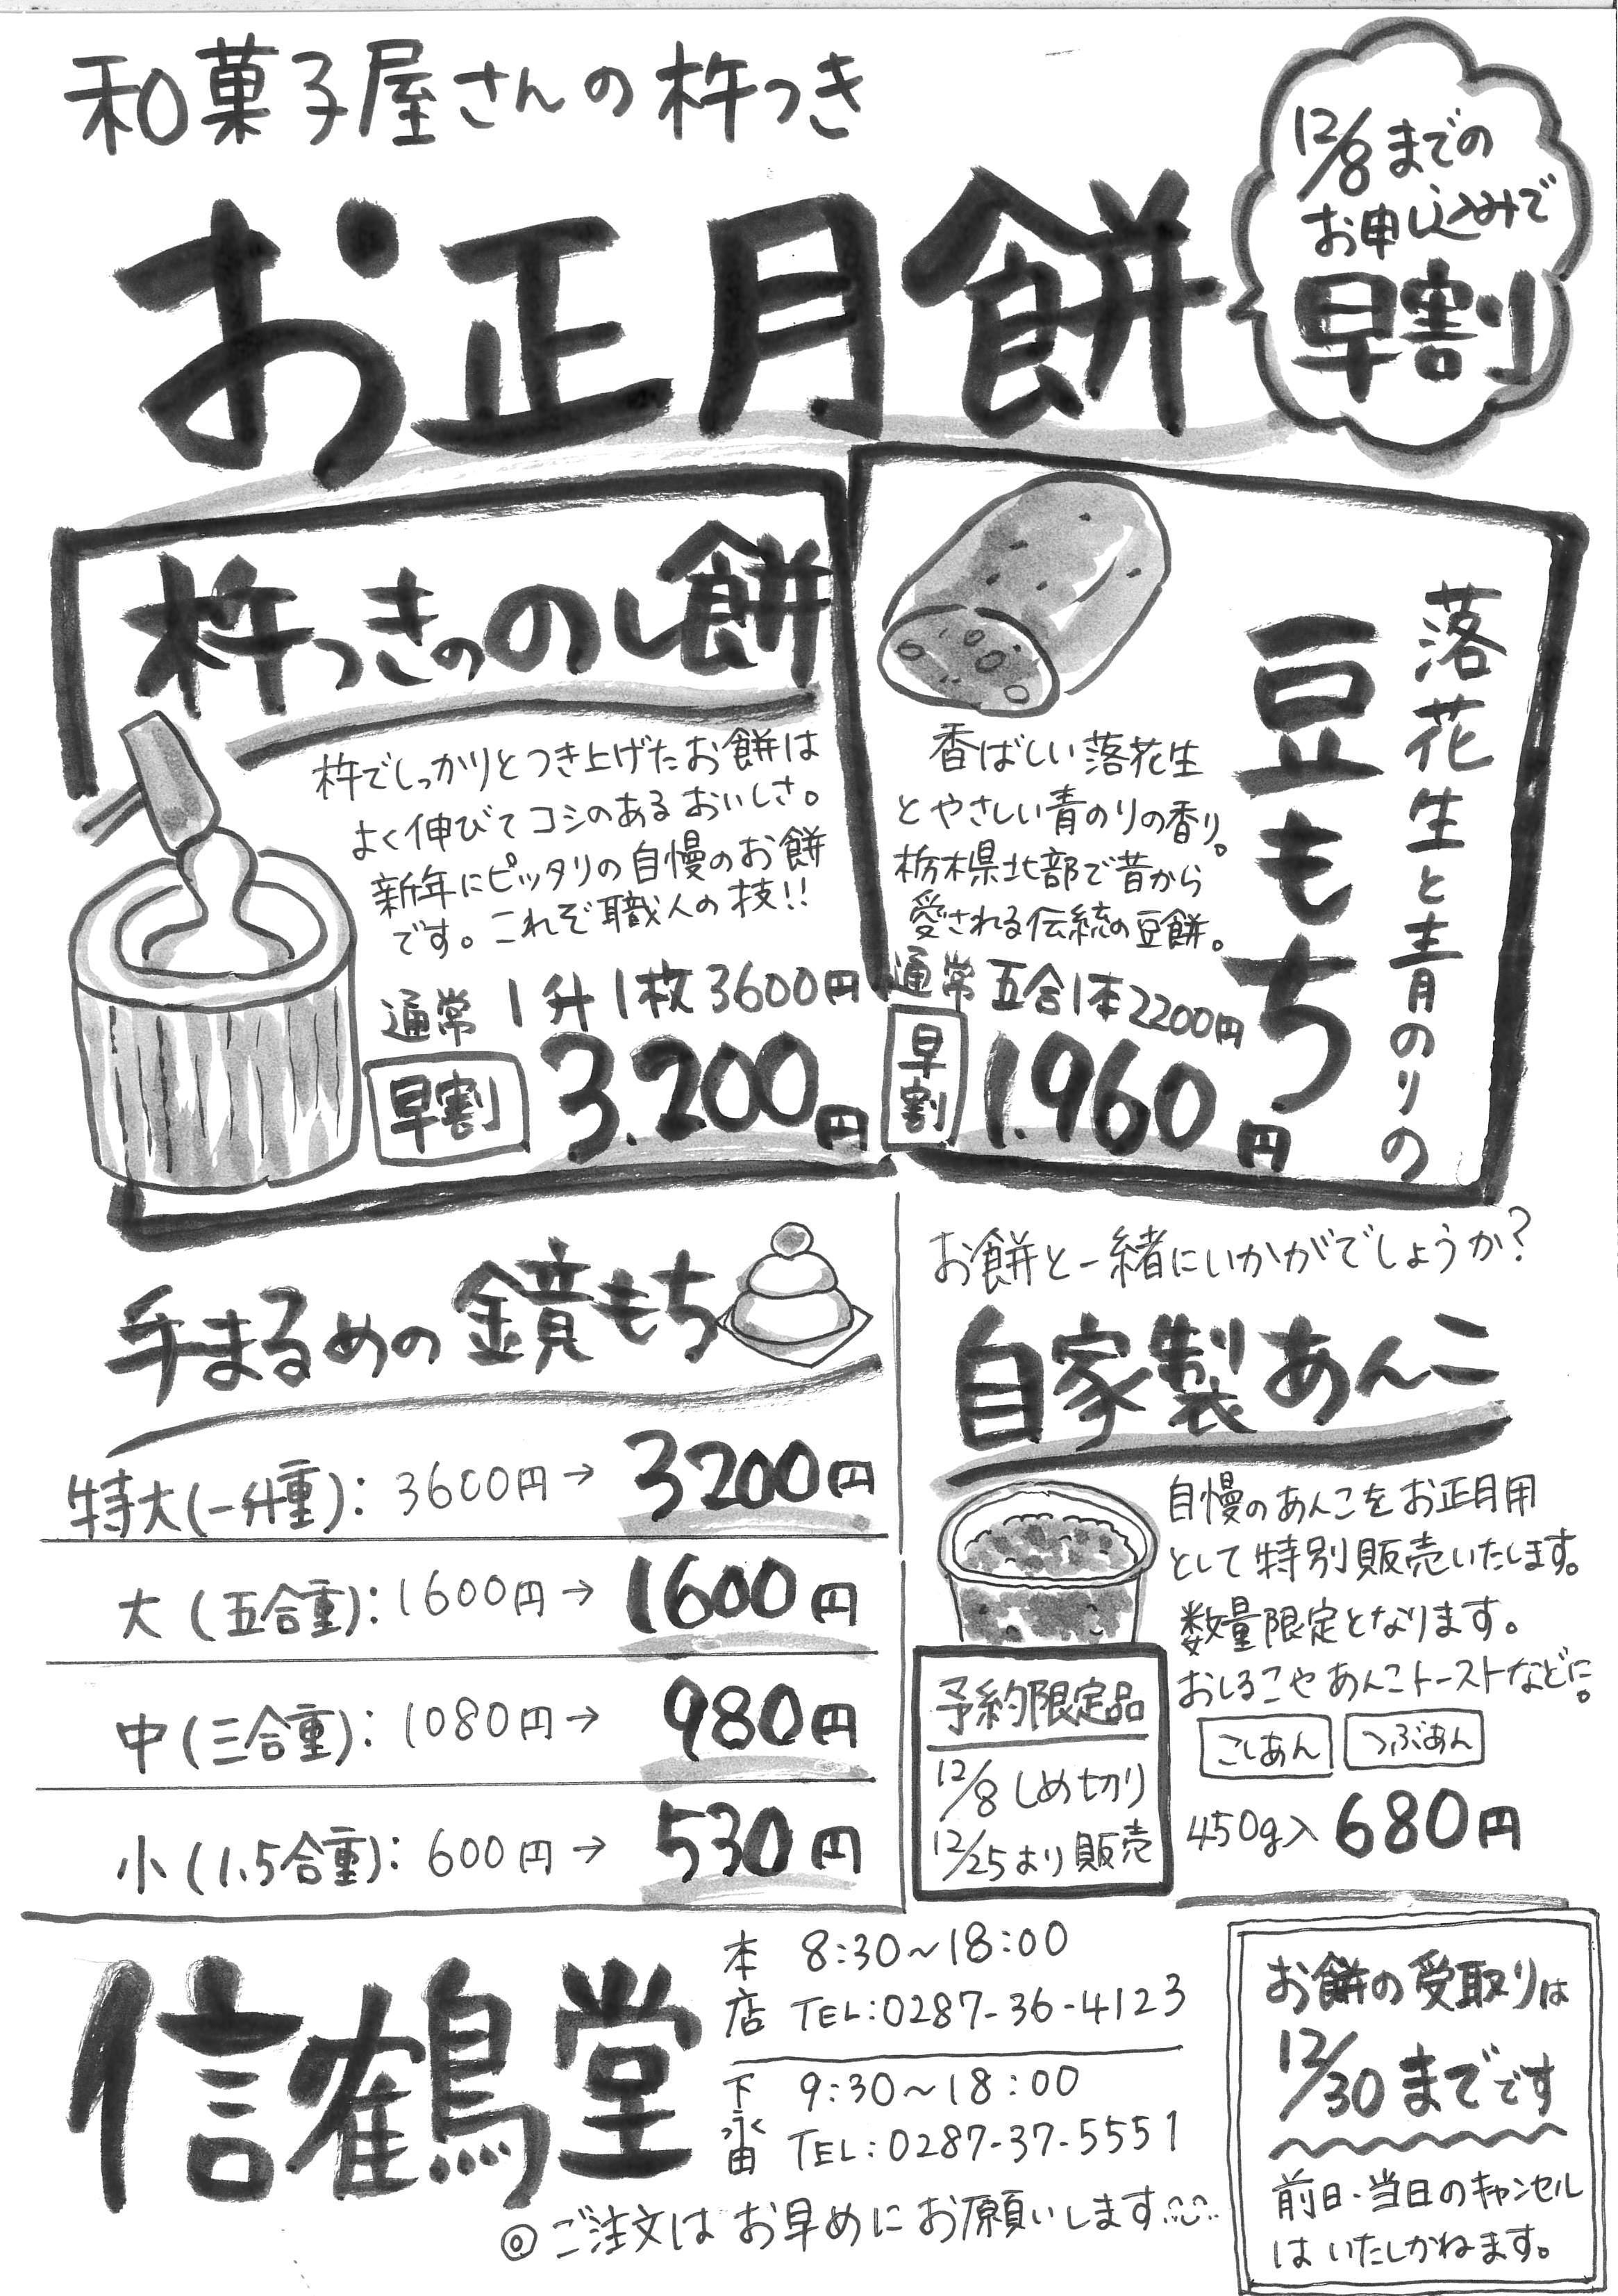 和菓子屋さんの杵つき
お正月餅
12/8までの
お申し込みで
早割
杵つきののし餅
杵でしっかりとつき上げたお餅は
よく伸びてコシのあるおいしさ。
新年にピッタリの自慢のお餅
です。これぞ職人の技!!
通常 1升1枚3600円
早割 3.200円
落花生と青のりの
豆もち
香ばしい落花生
とやさしい青のりの香り。
栃木県北部で昔から
愛される伝統の豆餅。
通常 五合1本2200円
早割 1.960円
手まるめの鏡もち
特大(一升重): 3600円→ 3200円
大(五合重): 1600円→ 1600円
中(三合重): 1080円→ 980円
小(1.5合重): 600円→ 530円
お餅と一緒にいかがでしょうか?
自家製あんこ
自慢のあんこをお正月用
として特別販売いたします。
数量限定となります。
おしるこやあんこトーストなどに。
こしあん つぶあん
450g入 680円
予約限定品
12/8しめ切り
12/25より販売
信鶴堂
本店 8:30~18:00
TEL:0287-36-4123
下永田 9:30~18:00
TEL:0287-37-5551
◎ご注文はお早めにお願いします
お餅の受取りは
12/30までです
前日・当日のキャンセル
はいたしかねます。